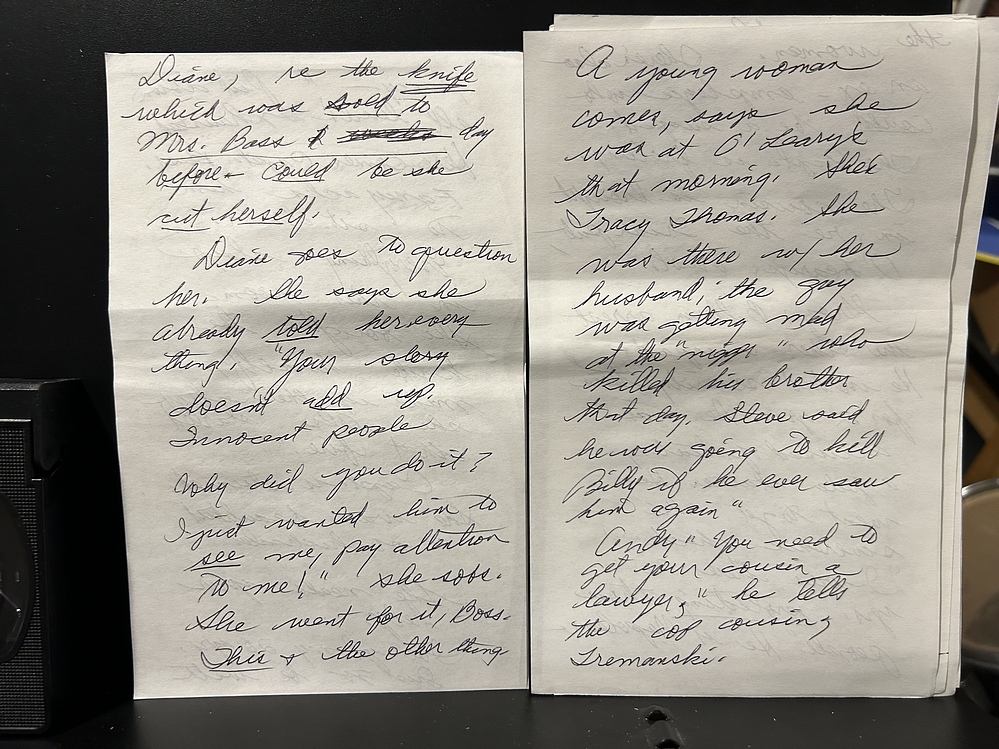 Diane, re the knife
which was sold to
Mrs. Bass day
before - Could be she
cut herself.
Diane goes to question
her. She says she
already told her every
thing. "Your story
doesn't add up.
Innocent people
Why did you do it?
I just wanted him to
see me, pay attention
to me!" She sobs.
She went for it, Boss.
This & the other thing
A young woman
comes, says she
was at O'Leary's
that morning. She's
Tracy Thomas. She
was there w/ her
husband; the guy
was getting mad
at the "niggr" who
killed his brother
that day. Steve said
he was going to kill
Billy if he ever saw
him again"
Andy "You need to
get your cousin a
lawyer," he tells
the cop cousin,
Tremanski.